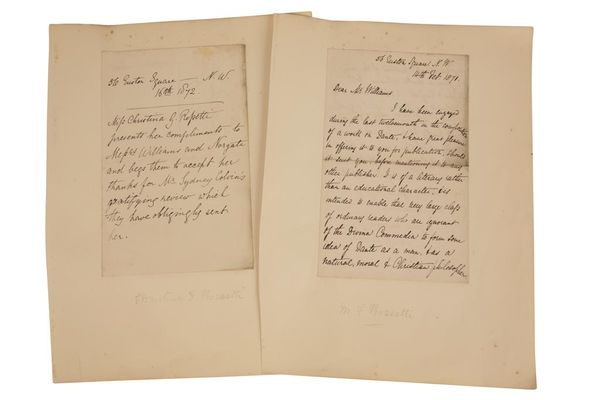 56 Euston Square — N.W.
16th 1872.
Miss Christina G. Rossetti
presents her compliments to
Messrs Williams and Norgate
and begs them to accept her
thanks for Mr. Sydney Colvin's
gratifying review which
they have obligingly sent
her.
Christina G Rossetti
56 Euston Square N.W.
14th Feb. 1871.
Dear Mr Williams
I have been engaged
during the last twelvemonth in the composition
of a work on Dante, & have great pleasure
in offering it to you for publication, should
it suit you, before mentioning it to any
other publisher. It is of a literary rather
than an educational character, & is
intended to enable that very large class
of ordinary readers who are ignorant
of the Divina Commedia to form some
idea of Dante as a man, & as a
natural, moral & Christian philosopher
M F Rossetti